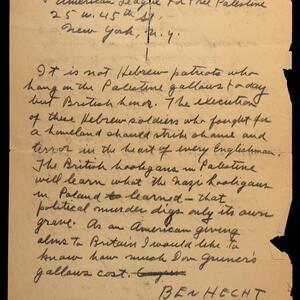 American League for Free Palestine
25 W. 45th St.
New York, N.Y.
It is not Hebrew patriots who
hang on the Palestine gallows today
but British honor. The execution
of these Hebrew soldiers who fought for
a homeland should strike shame and
terror in the heart of every Englishman.
The British hooligans in Palestine
will learn what the Nazi hooligans
in Poland learned — that
political murder digs only its own
grave. As an American giving
alms to Britain I would like to
know how much Dov Gruner's
gallows cost.
BEN HECHT